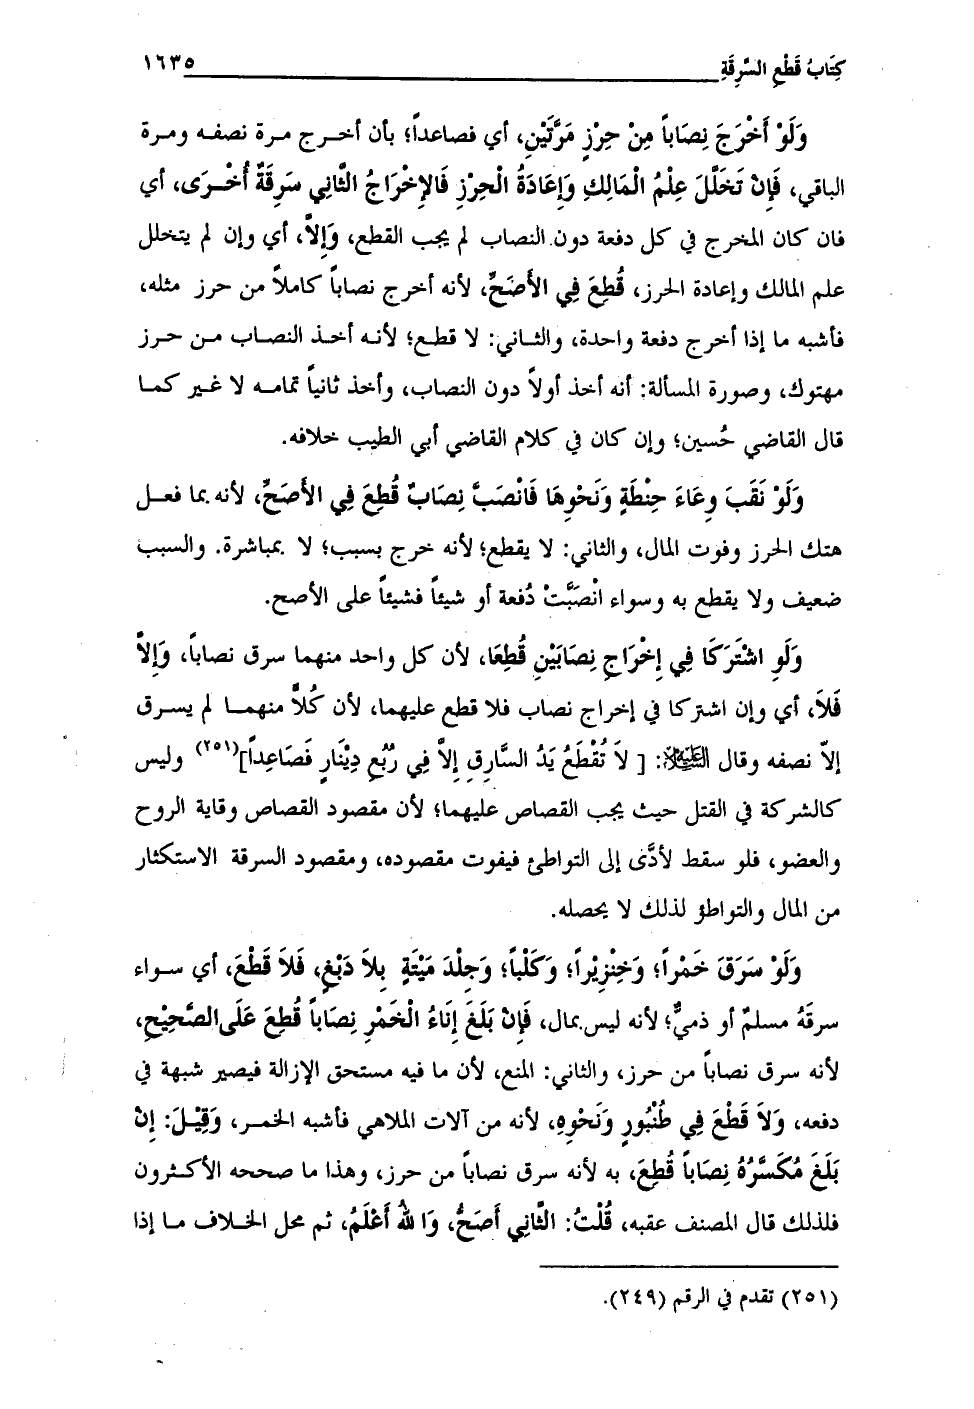 كِتَابُ قَطْعِ السَّرِقَةِ ١٦٣٥
وَلَوْ أَخْرَجَ نِصَاباً مِنْ حِرْزٍ مَرَّتَيْنِ، أي فصاعداً؛ بأن أخـرج مـرة نصفـه ومـرة
الباقي، فَإِنْ تَخَلَّلَ عِلْمُ الْمَالِكِ وَإِعَادَةُ الْحِرْزِ فَالإِخْرَاجُ الثَّانِي سَرِقَةٌ أُخْـرَى، أي
فان كان المخرج في كل دفعة دون النصاب لم يجب القطع، وَإِلاَّ، أي وإن لم يتخلل
علم المالك وإعادة الحرز، قُطِعَ فِي الأَصَحِّ، لأنه أخرج نصاباً كاملاً من حرز مثله،
فأشبه ما إذا أخرج دفعة واحدة، والثـاني: لا قطـع؛ لأنـه أخـذ النصـاب مـن حـرز
مهتوك، وصورة المسألة: أنه أخذ أولاً دون النصاب، وأخذ ثانياً تمامـه لا غـير كمـا
قال القاضي حُسين؛ وإن كان في كلام القاضي أبي الطيب خلافه.
وَلَوْ نَقَبَ وِعَاءَ حِنْطَةٍ وَنَحْوِهَا فَانْصَبَّ نِصَابٌ قُطِعَ فِي الأَصَحِّ، لأنه بما فعـل
هتك الحرز وفوت المال، والثاني: لا يقطع؛ لأنه خرج بسبب؛ لا بمباشرة. والسبب
ضعيف ولا يقطع به وسواء انْصَبَّتْ دُفعة أو شيئاً فشيئاً على الأصح.
وَلَوِ اشْتَرَكَا فِي إِخْرَاجِ نِصَابَيْنِ قُطِعَا، لأن كل واحد منهما سرق نصاباً، وَإِلاَّ
فَلاَ، أي وإن اشتركا في إخراج نصاب فلا قطع عليهما، لأن كُلاًّ منهمـا لم يسـرق
إلاّ نصفه وقال عليه السلام: [ لاَ تُقْطَعُ يَدُ السَّارِقِ إِلاَّ فِي رُبُعِ دِيْنَارٍ فَصَاعِداً](٢٥١) وليس
كالشركة في القتل حيث يجب القصاص عليهما؛ لأن مقصود القصاص وقاية الروح
والعضو، فلو سقط لأدَّى إلى التواطئ فيفوت مقصوده، ومقصود السرقة الاستكثار
من المال والتواطؤ لذلك لا يحصله.
وَلَوْ سَرَقَ خَمْراً؛ وَخِنْزِيراً؛ وَكَلْباً؛ وَجِلْدَ مَيْتَةٍ بِلاَ دَبْغٍ، فَلاَ قَطْعَ، أي سـواء
سرقَهُ مسلمٌ أو ذميٌّ؛ لأنه ليس بمال، فَإِنْ بَلَغَ إِنَاءُ الْخَمْرِ نِصَاباً قُطِعَ عَلَى الصَّحِيْحِ،
لأنه سرق نصاباً من حرز، والثاني: المنع، لأن ما فيه مستحق الإزالة فيصير شبهة في
دفعه، وَلاَ قَطْعَ فِي طُنْبُورٍ وَنَحْوِهِ، لأنه من آلات الملاهي فأشبه الخمـر، وَقِيْلَ: إِنْ
بَلَغَ مُكَسَّرُهُ نِصَاباً قُطِعَ، به لأنه سرق نصاباً من حرز، وهذا ما صححه الأكـثرون
فلذلك قال المصنف عقبه، قُلْتُ: الثَّانِي أَصَحُّ، وَاللهُ أَعْلَمُ، ثم محل الخلاف مـا إذا
(٢٥١) تقدم في الرقم (٢٤٩).